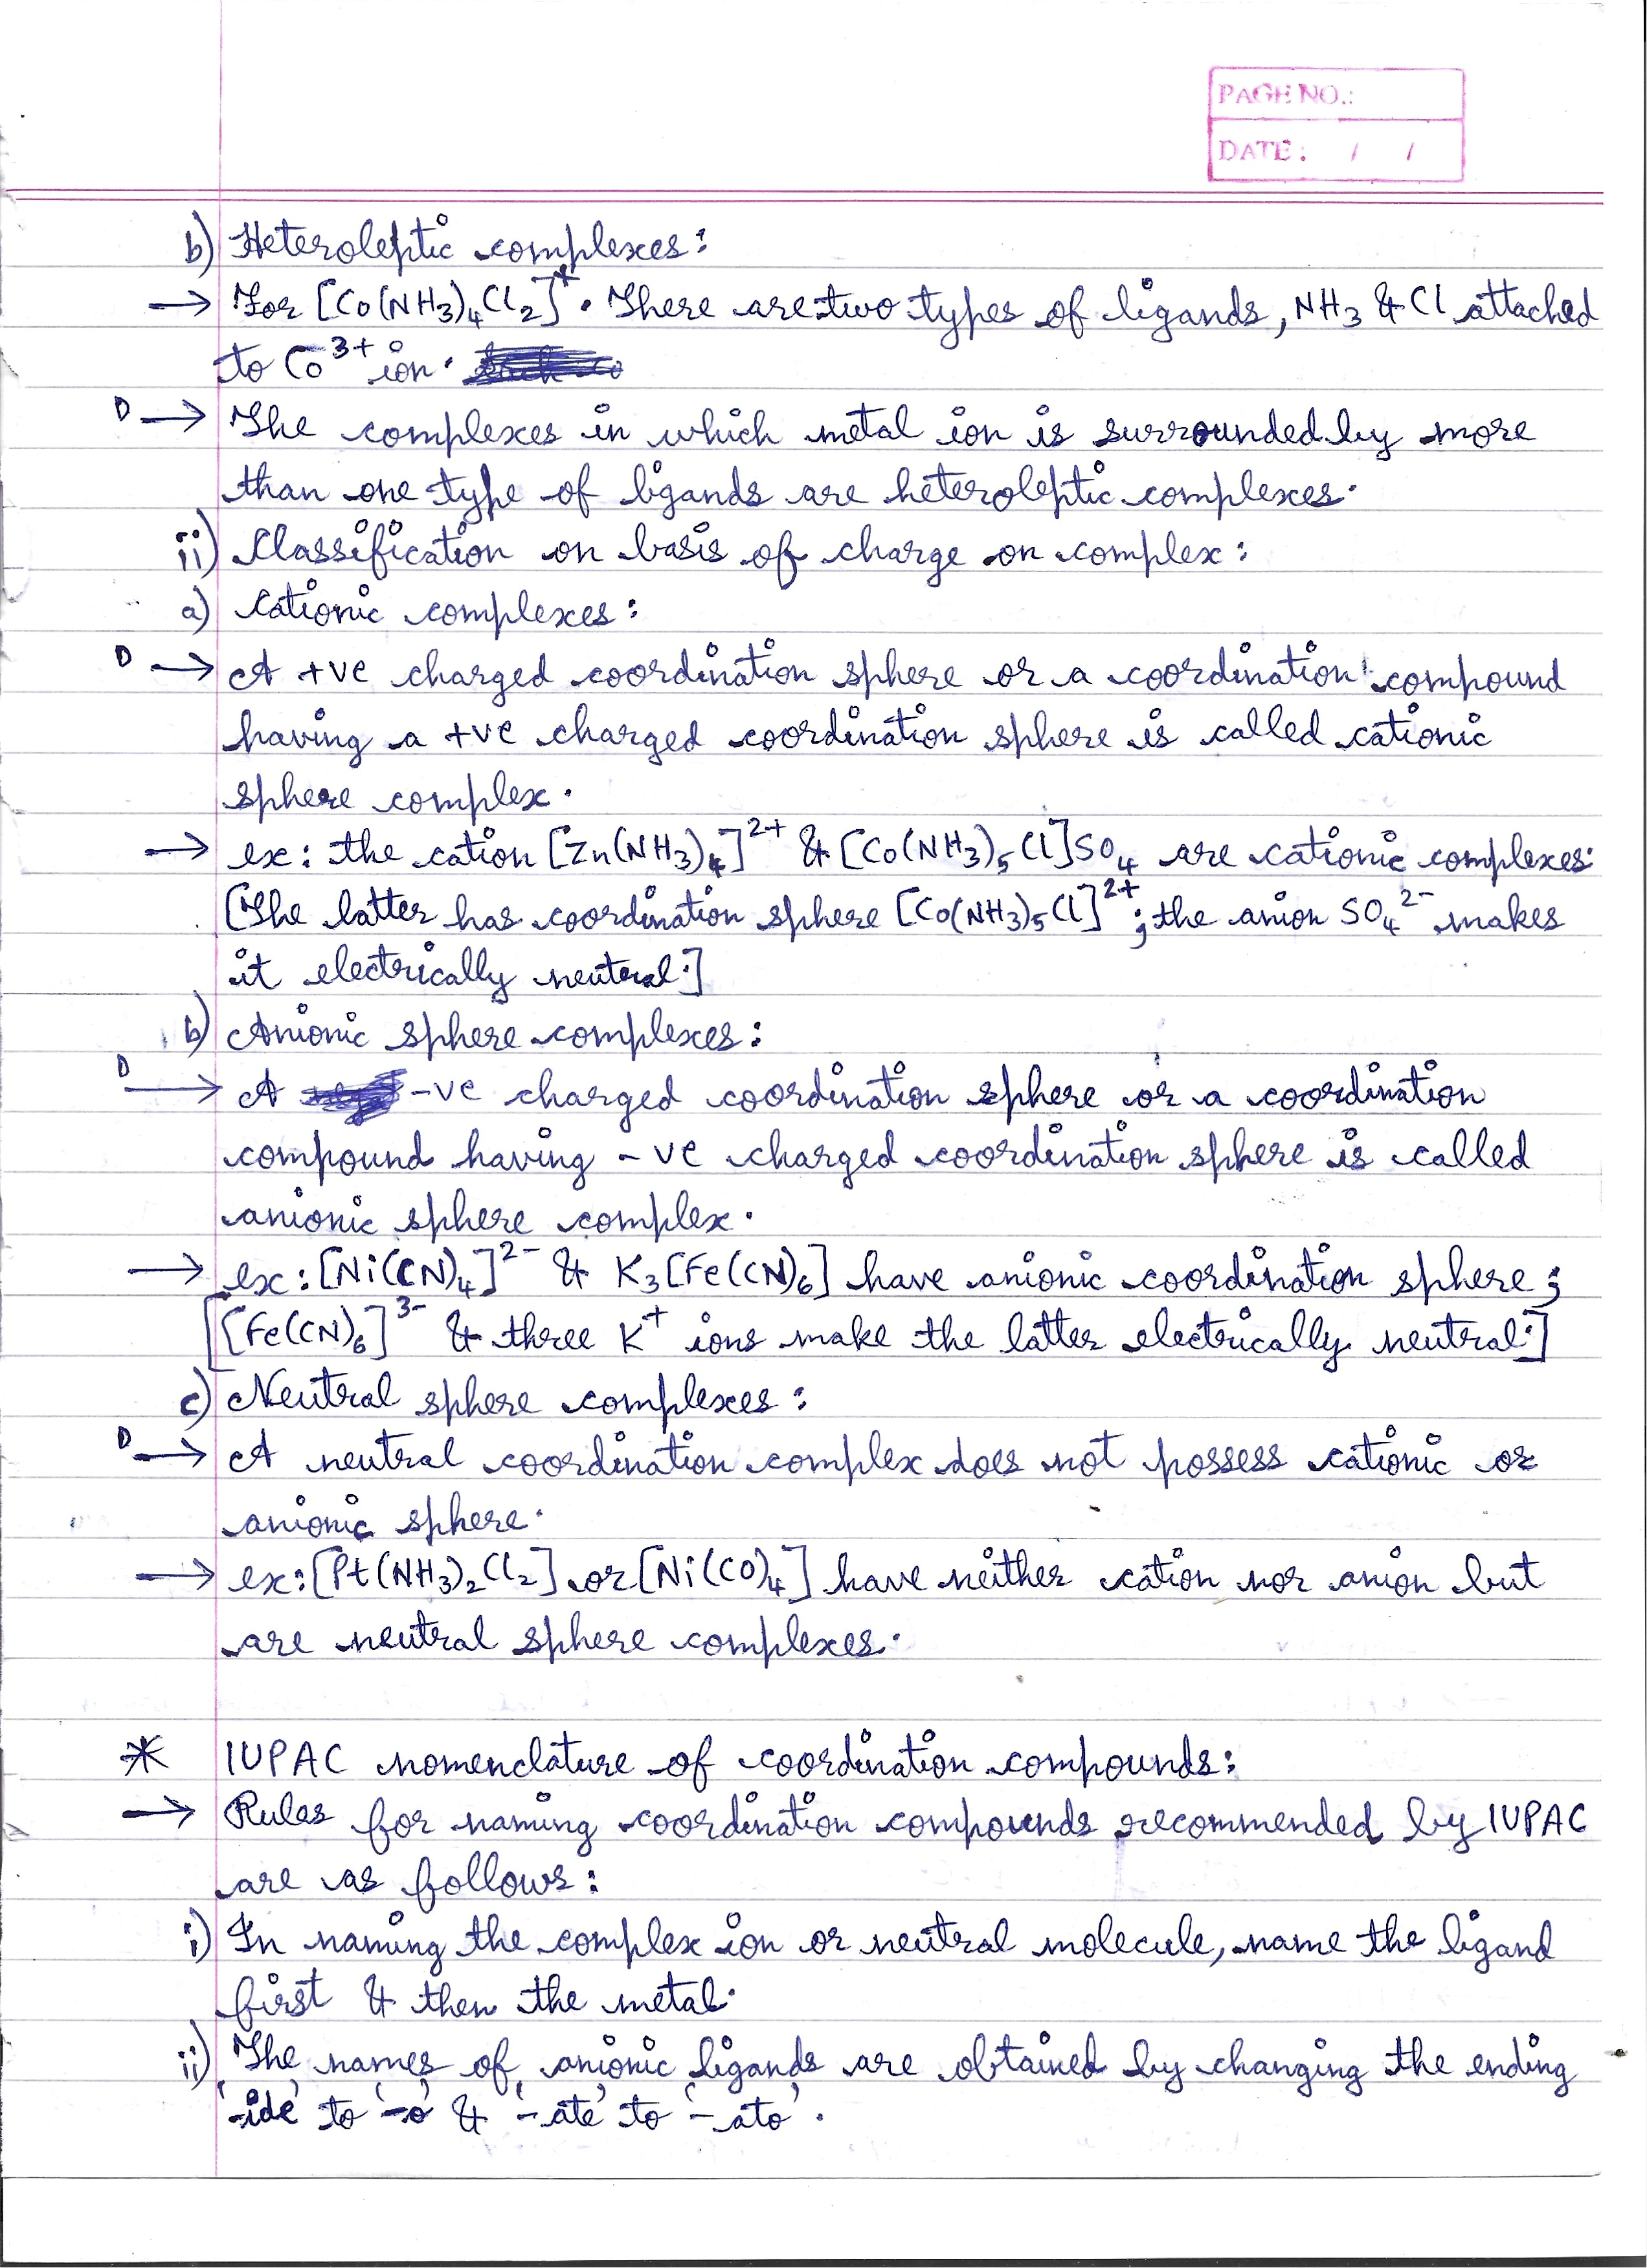 PAGE NO.:
DATE: / /
b) Heteroleptic complexes:
→ For [Co(NH₃)₄Cl₂]⁺. There are two types of ligands, NH₃ & Cl attached
to Co³⁺ ion.
D → The complexes in which metal ion is surrounded by more
than one type of ligands are heteroleptic complexes.
ii) Classification on basis of charge on complex:
a) Cationic complexes:
D → A +ve charged coordination sphere or a coordination compound
having a +ve charged coordination sphere is called cationic
sphere complex.
→ ex: the cation [Zn(NH₃)₄]²⁺ & [Co(NH₃)₅Cl]SO₄ are cationic complexes.
[The latter has coordination sphere [Co(NH₃)₅Cl]²⁺; the anion SO₄²⁻ makes
it electrically neutral.]
b) Anionic sphere complexes:
D → A -ve charged coordination sphere or a coordination
compound having -ve charged coordination sphere is called
anionic sphere complex.
→ ex: [Ni(CN)₄]²⁻ & K₃[Fe(CN)₆] have anionic coordination sphere;
[[Fe(CN)₆]³⁻ & three K⁺ ions make the latter electrically neutral.]
c) Neutral sphere complexes:
D → A neutral coordination complex does not possess cationic or
anionic sphere.
→ ex: [Pt(NH₃)₂Cl₂] or [Ni(CO)₄] have neither cation nor anion but
are neutral sphere complexes.
* IUPAC nomenclature of coordination compounds:
→ Rules for naming coordination compounds recommended by IUPAC
are as follows:
i) In naming the complex ion or neutral molecule, name the ligand
first & then the metal.
ii) The names of anionic ligands are obtained by changing the ending
'-ide' to '-o' & '-ate' to '-ato'.